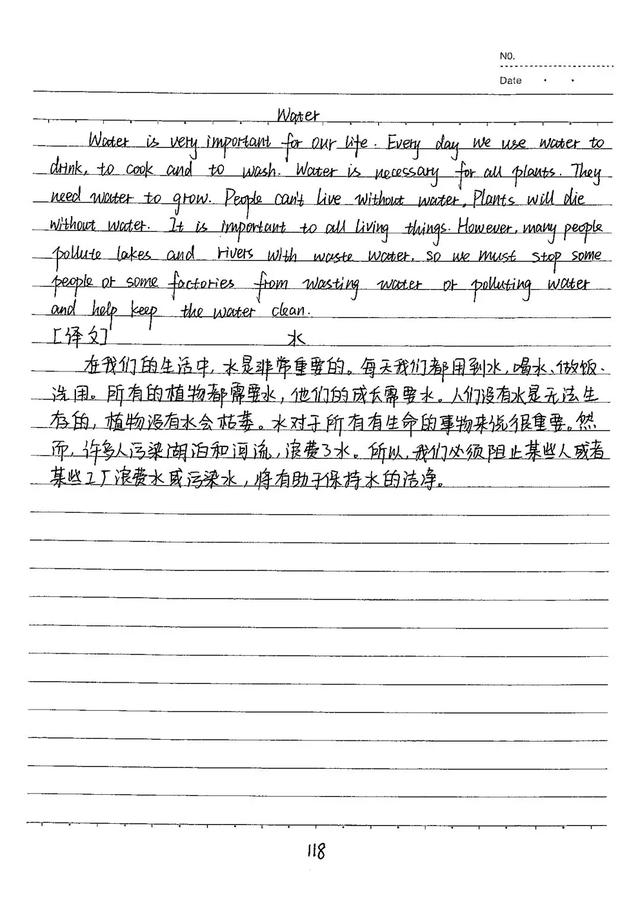 NO.
Date
Water
Water is very important for our life. Every day we use water to
drink, to cook and to wash. Water is necessary for all plants. They
need water to grow. People can't live without water, Plants will die
without water. It is important to all living things. However, many people
pollute lakes and rivers with waste water, so we must stop some
people or some factories from wasting water or polluting water
and help keep the water clean.
[译文] 水
在我们的生活中,水是非常重要的。每天我们都用到水,喝水、做饭、
洗用。所有的植物都需要水,他们的成长需要水。人们没有水是无法生
存的,植物没有水会枯萎。水对于所有有生命的事物来说很重要。然
而,许多人污染湖泊和河流,浪费了水。所以,我们必须阻止某些人或者
某些工厂浪费水或污染水,将有助于保持水的洁净。
118